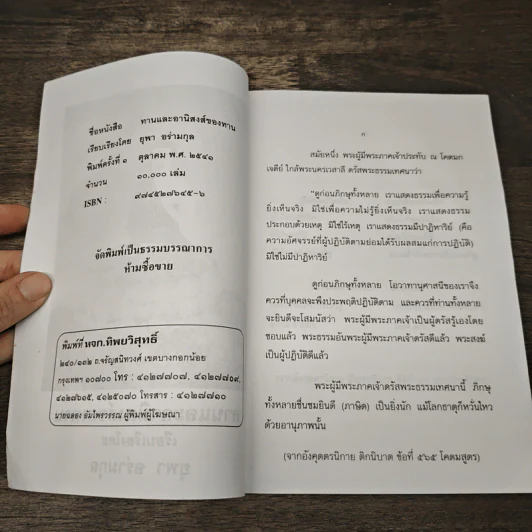 ชื่อหนังสือ ทานและอานิสงส์ของทาน
เรียบเรียงโดย ยุพา อร่ามกุล
พิมพ์ครั้งที่ ๑ ตุลาคม พ.ศ. ๒๕๔๑
จำนวน ๑๐,๐๐๐ เล่ม
ISBN : ๙๗๔๕๒๗๖๔๕-๖
จัดพิมพ์เป็นธรรมบรรณาการ
ห้ามซื้อขาย
พิมพ์ที่ หจก.ทิพยวิสุทธิ์
๒๔๐/๑๓๒ ถ.จรัญสนิทวงศ์ เขตบางกอกน้อย
กรุงเทพฯ ๑๐๗๐๐ โทร : ๔๑๒๗๗๐๗, ๔๑๒๗๗๐๙,
๔๑๒๗๖๑๕, ๔๑๒๕๐๗๐ โทรสาร : ๔๑๒๗๗๑๐
นายฉลอง อัมไพรวรรณ ผู้พิมพ์ผู้โฆษณา
สมัยหนึ่ง พระผู้มีพระภาคเจ้าประทับ ณ โคตมก
เจดีย์ ใกล้พระนครเวสาลี ตรัสพระธรรมเทศนาว่า
"ดูก่อนภิกษุทั้งหลาย เราแสดงธรรมเพื่อความรู้
ยิ่งเห็นจริง มิใช่เพื่อความไม่รู้ยิ่งเห็นจริง เราแสดงธรรม
ประกอบด้วยเหตุ มิใช่ไร้เหตุ เราแสดงธรรมมีปาฏิหาริย์ (คือ
ความอัศจรรย์ที่ผู้ปฏิบัติตามย่อมได้รับผลสมแก่การปฏิบัติ)
มิใช่ไม่มีปาฏิหาริย์
ดูก่อนภิกษุทั้งหลาย โอวาทานุศาสนีของเราจึง
ควรที่บุคคลจะพึงประพฤติปฏิบัติตาม และควรที่ท่านทั้งหลาย
จะยินดีจะโสมนัสว่า พระผู้มีพระภาคเจ้าเป็นผู้ตรัสรู้เองโดย
ชอบแล้ว พระธรรมอันพระผู้มีพระภาคเจ้าตรัสดีแล้ว พระสงฆ์
เป็นผู้ปฏิบัติดีแล้ว
พระผู้มีพระภาคเจ้าตรัสพระธรรมเทศนานี้ ภิกษุ
ทั้งหลายชื่นชมยินดี (ภาษิต) เป็นยิ่งนัก แม้โลกธาตุก็หวั่นไหว
ด้วยอานุภาพนั้น
(จากอังคุตตรนิกาย ติกนิบาต ข้อที่ ๕๖๕ โคตมสูตร)